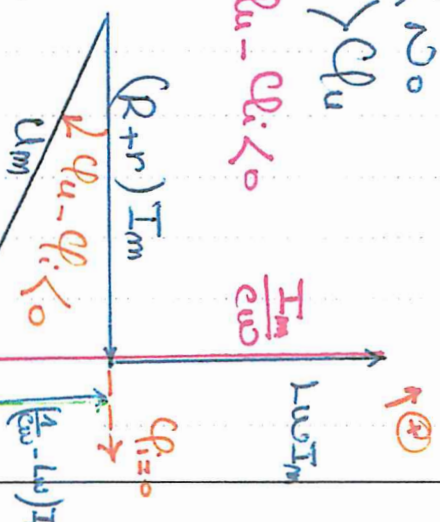 φu
φu - φi < 0
(R+r) Im
Um
φu - φi < 0
Im/Cω
LωIm
φi=0
(1/Cω - Lω)I
+